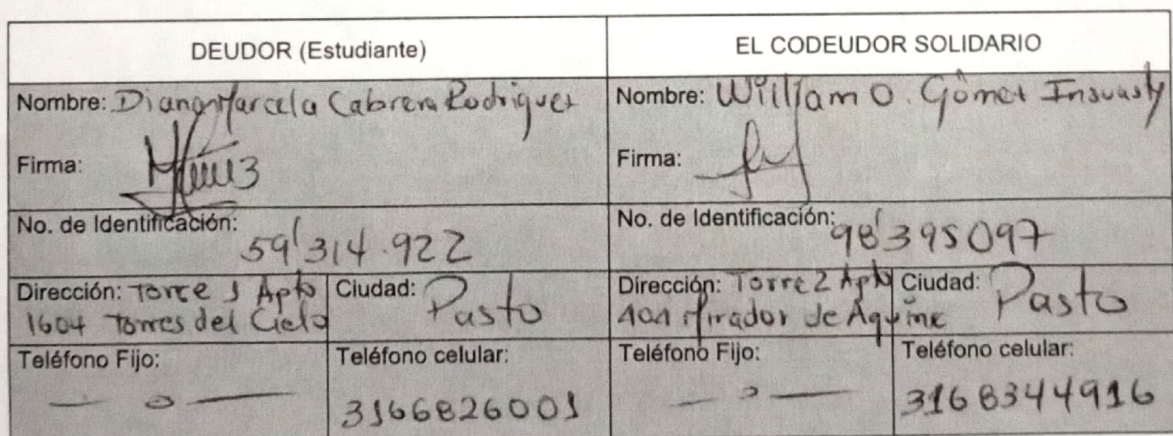 DEUDOR (Estudiante)
EL CODEUDOR SOLIDARIO
Nombre: Diana Marcela Cabrera Rodriguez
Nombre: William O. Gómez Insuasty
Firma:
Firma:
No. de Identificación: 59'314.922
No. de Identificación: 98'395097
Dirección: Torre 1 Apto
1604 Torres del Cielo
Ciudad: Pasto
Dirección: Torre 2 Apto
401 Mirador de Aquine
Ciudad: Pasto
Teléfono Fijo:
— o —
Teléfono celular:
3166826001
Teléfono Fijo:
— o —
Teléfono celular:
3168344916